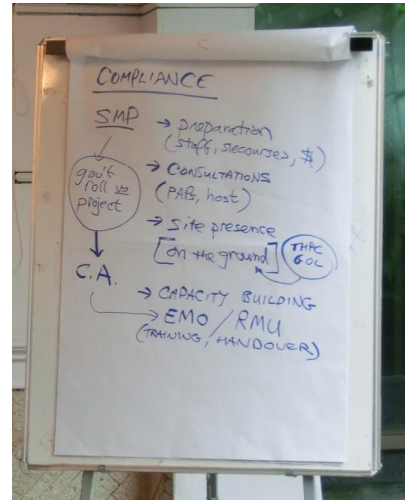 COMPLIANCE
SMP
→ Preparation
(staff, resources, $)
gov't
roll vs
project
→ CONSULTATIONS
(PAPs, host)
→ Site presence
[on the ground]
THPC
GOL
C.A.
→ CAPACITY BUILDING
→ EMO / RMU
(TRAINING, HANDOVER)